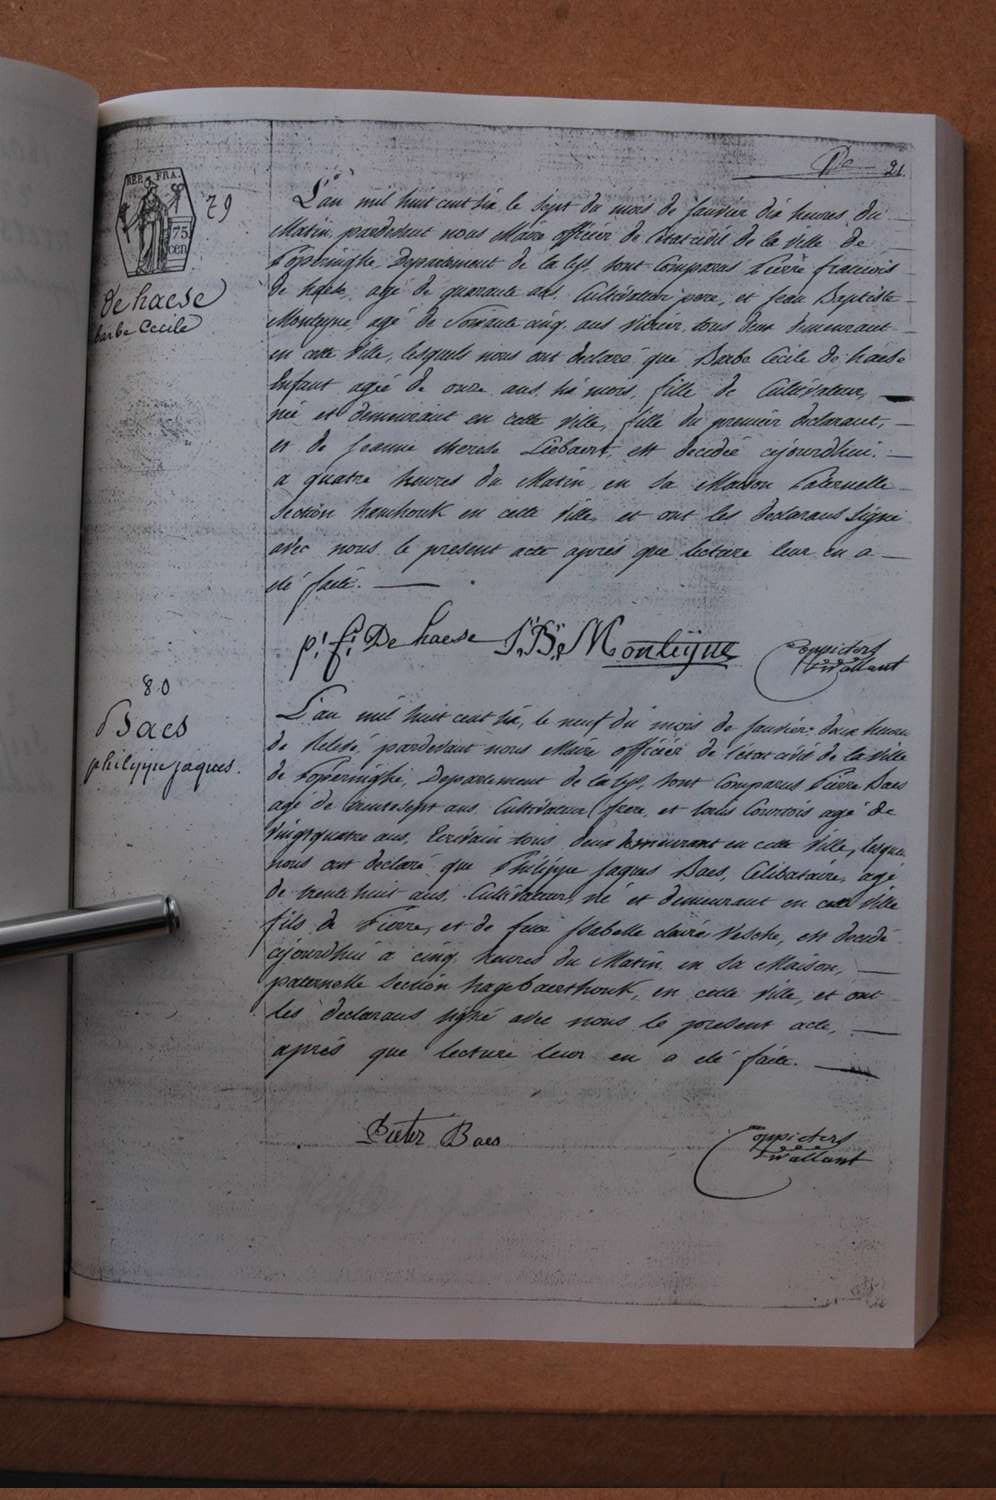 21
REP. FRA.
75
cen
79
De haese
barbe Cecile
L'an mil huit cent six le sept du mois de Janvier dix heures du
Matin, pardevant nous Maire officier de l'état civil de la ville de
Poperinghe, Departement de la Lys, sont Comparus Pierre francois
de haese, agé de quarante ans, Cultivateur pere, et Jean Baptiste
Monteyne agé de Soixante cinq ans Vitrier, tous deux demeurant
en cette Ville, lesquels nous ont declaré que Barbe Cecile de haese
Enfant agée de onze ans, six mois, fille de Cultivateur,
née et demeurant en cette ville, fille du premier declarant,
et de Jeanne therese Liebaert, est decedée cejourdhui
a quatre heures du Matin en Sa Maison Paternelle
Section hamhouk en cette Ville, et ont les declarans Signé
avec nous le present acte aprés que lecture leur en a
été faite.
p: f: De haese J: B: Monteijne
Coppieters
Wallant
80
Baes
philippe jaques.
L'an mil huit cent six, le neuf du mois de Janvier deux heures
de Relevé, pardevant nous Maire officier de l'état civil de la Ville
de Poperinghe, Departement de la Lys, sont Comparus Pierre Baes
agé de trente sept ans, Cultivateur frere, et Louis Courtois agé de
Vingt quatre ans, Ecrivain tous deux demeurant en cette Ville, lesque
nous ont declaré que Philippe Jaques Baes, Célibataire, agé
de trente huit ans, Cultivateur, né et demeurant en cette Ville
fils de Pierre, et de feue Isabelle claire Vesche, est decedé
cejourdhui a cinq heures du Matin en Sa Maison,
paternelle Section hagebaerthouk, en cette Ville, et ont
les declarans signé avec nous le present acte,
aprés que lecture leur en a été faite.
Pieter Baes
Coppieters
Wallant